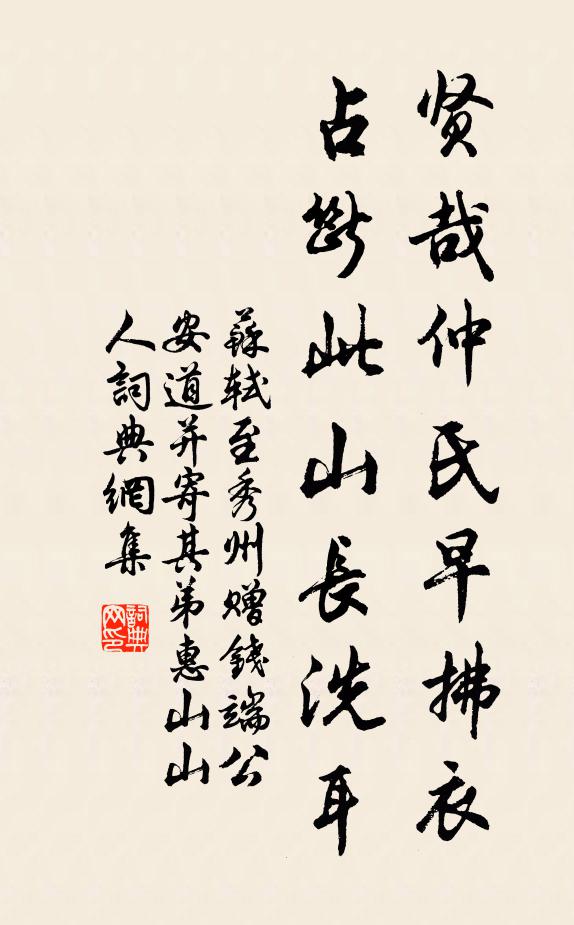 贤哉仲氏早拂衣
占断此山長洗耳
蘇軾至秀州赠錢端公
安道并寄其弟惠山山
人詞典網集
詞典网印